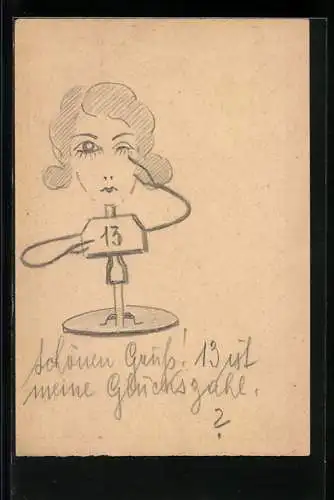 13
Schönen Gruß! 13 ist
meine Glückszahl.
?